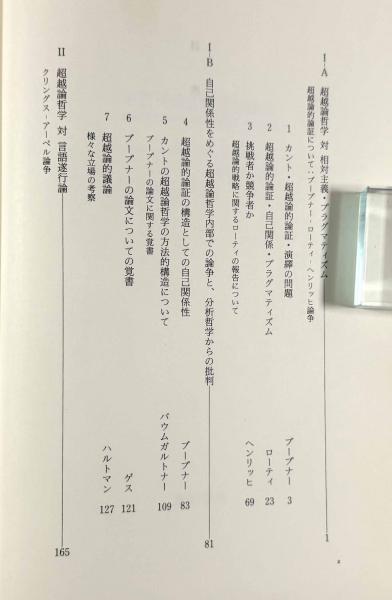 I-A 超越論哲学 対 相対主義・プラグマティズム 1
超越論的論証について：ブープナー-ローティ-ヘンリッヒ論争
1 カント・超越論的論証・演繹の問題 ブープナー 3
2 超越論的論証・自己関係・プラグマティズム ローティ 23
3 挑戦者か競争者か ヘンリッヒ 69
超越論的戦略に関するローティの報告について
I-B 自己関係性をめぐる超越論哲学内部での論争と、分析哲学からの批判 81
4 超越論的論証の構造としての自己関係性 ブープナー 83
5 カントの超越論哲学の方法的構造について バウムガルトナー 109
ブープナーの論文に関する覚書
6 ブープナーの論文についての覚書 ゲス 121
7 超越論的議論 ハルトマン 127
様々な立場の考察
II 超越論哲学 対 言語遂行論 165
クリングス-アーペル論争